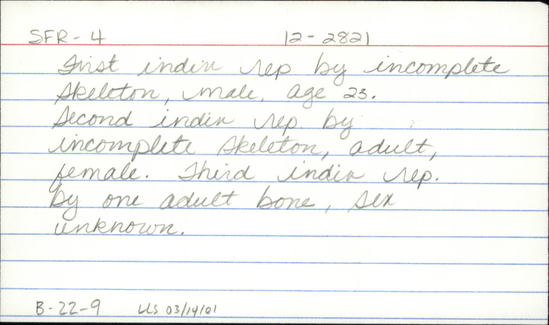 SFR-4 12-2821
First indiv rep by incomplete
skeleton, male, age 23.
Second indiv rep by
incomplete skeleton, adult,
female. Third indiv rep.
by one adult bone, sex
unknown.
B-22-9 LLS 03/14/01